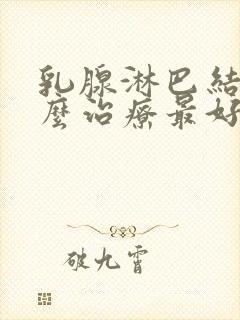 乳腺淋巴結
麼治療最好
破九霄